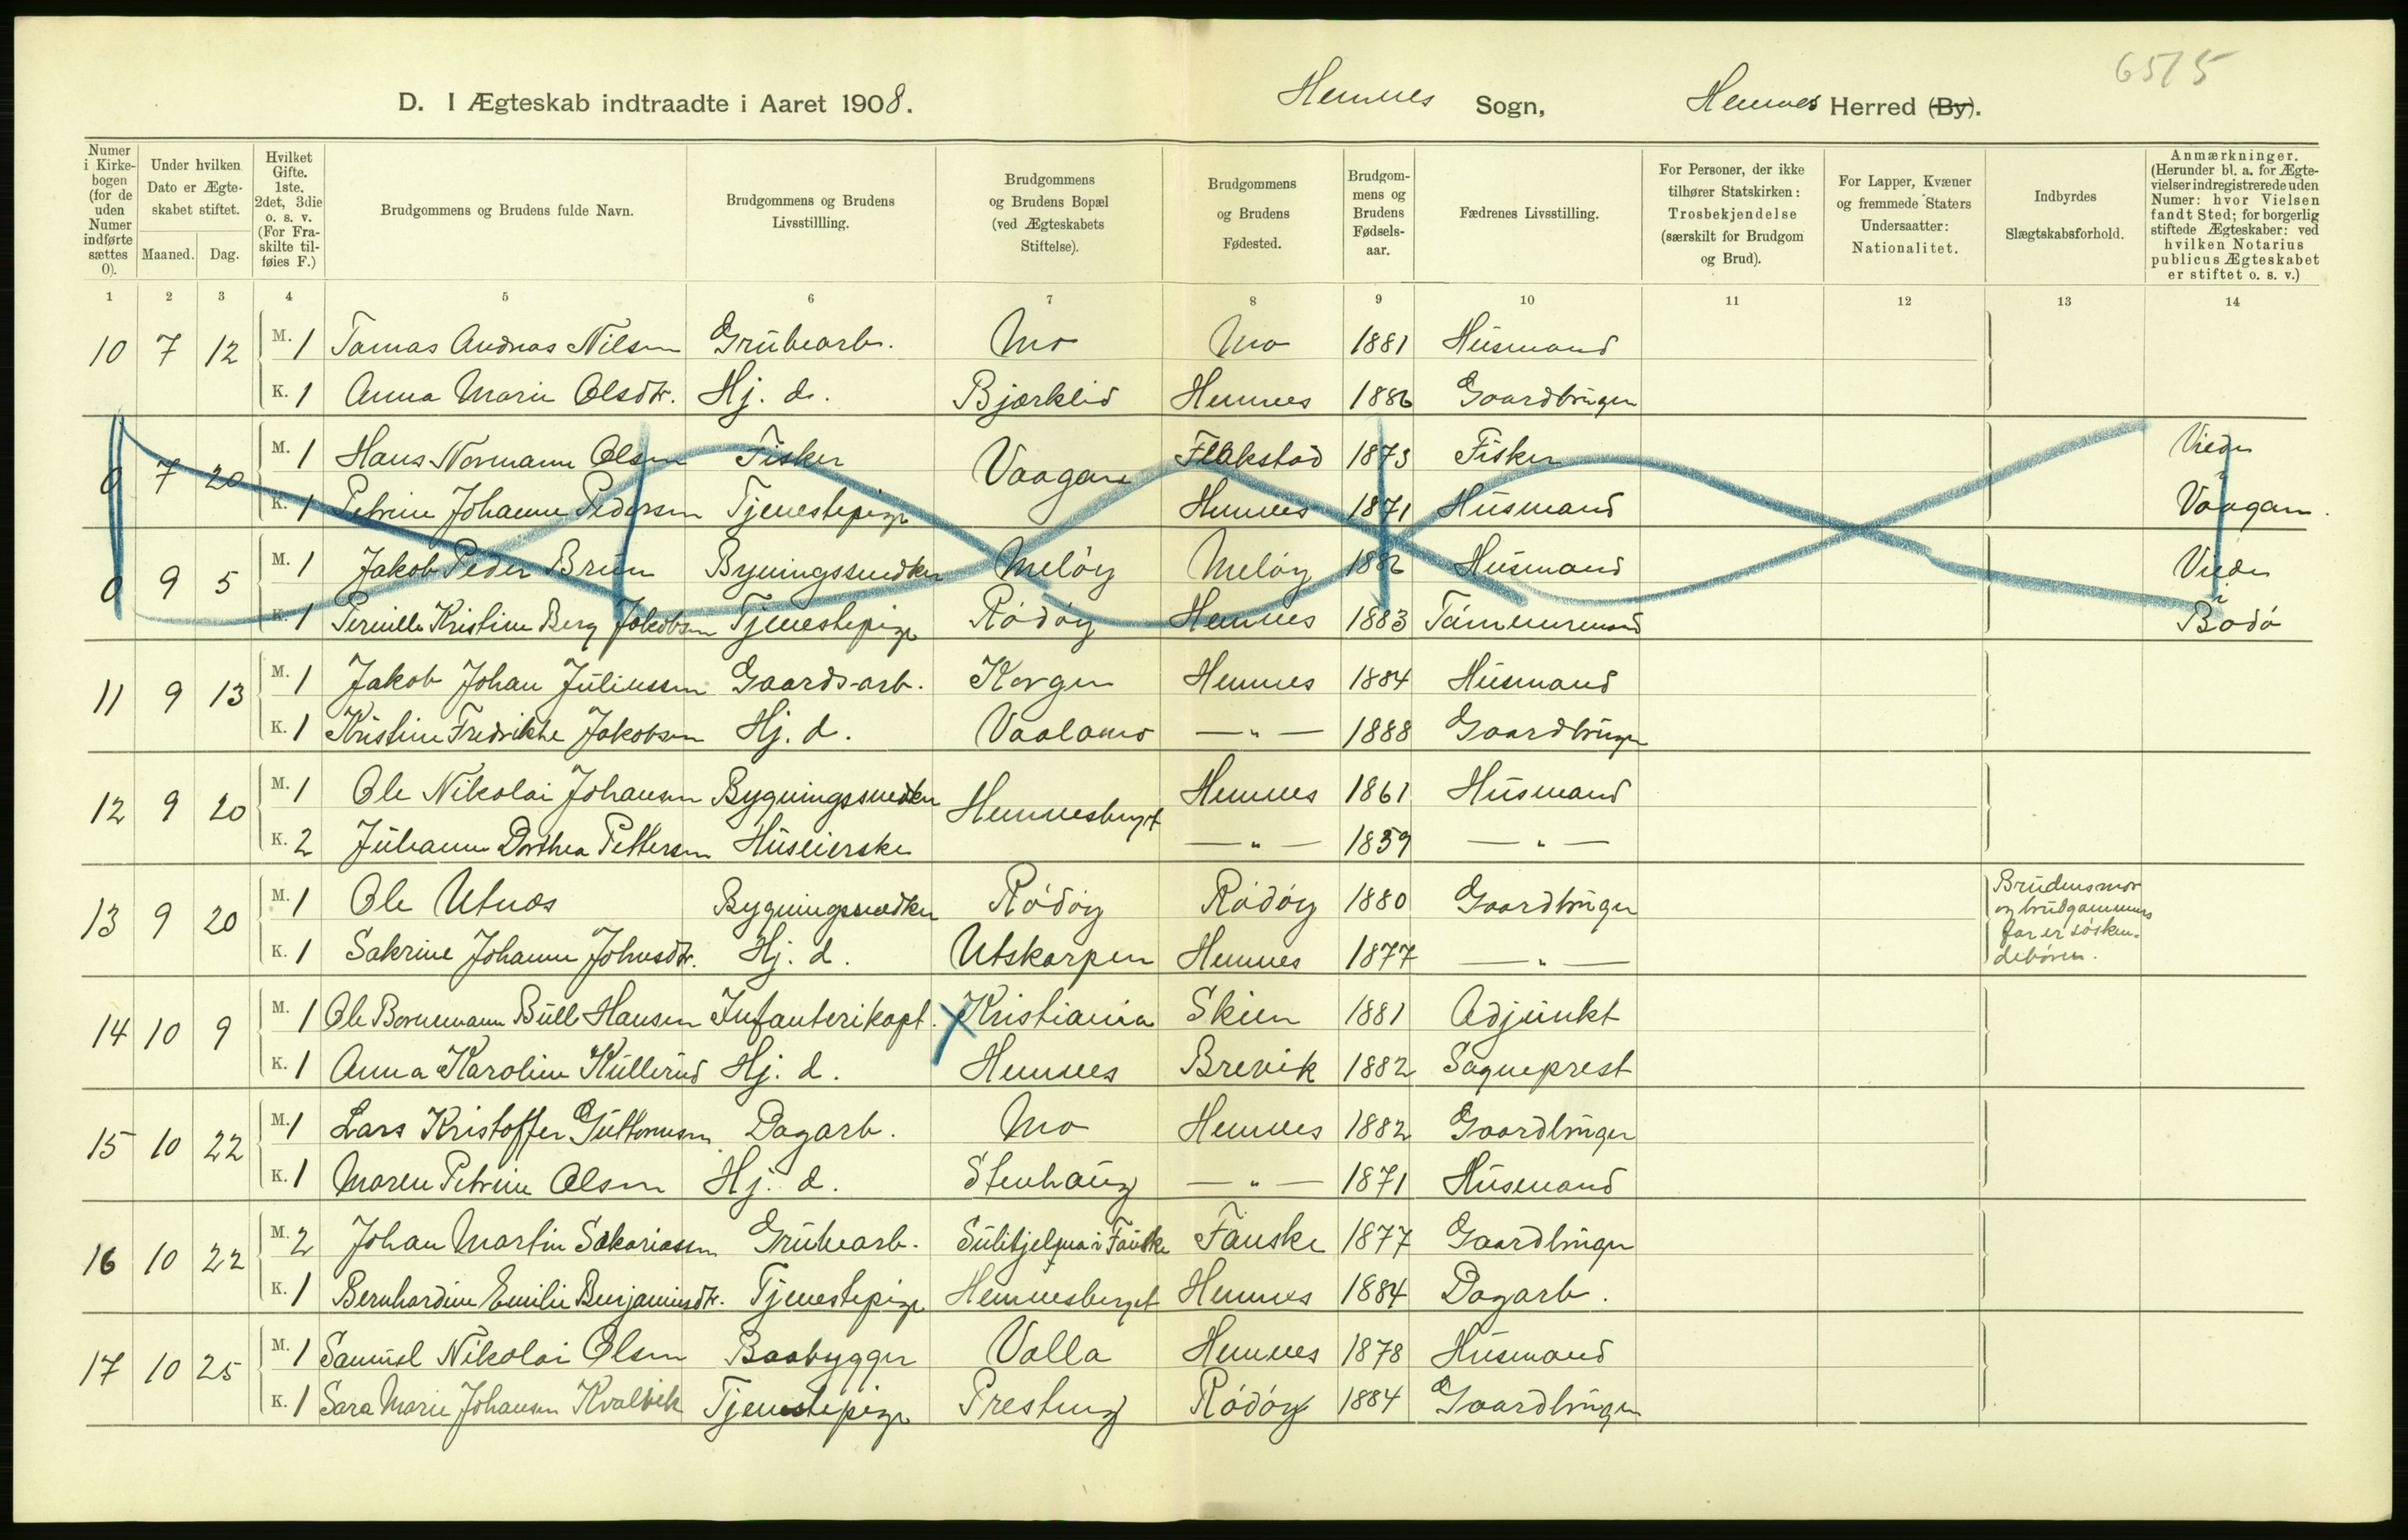 6515
D. I Ægteskab indtraadte i Aaret 1908. Hemnes Sogn, Hemnes Herred (By).
Numer i Kirkebogen (for de uden Numer indførte sættes 0).
Under hvilken Dato er Ægteskabet stiftet.
Maaned. Dag.
Hvilket Gifte. 1ste. 2det, 3die o. s. v. (For Fraskilte tilføies F.)
Brudgommens og Brudens fulde Navn.
Brudgommens og Brudens Livsstillling.
Brudgommens og Brudens Bopæl (ved Ægteskabets Stiftelse).
Brudgommens og Brudens Fødested.
Brudgommens og Brudens Fødselsaar.
Fædrenes Livsstilling.
For Personer, der ikke tilhører Statskirken: Trosbekjendelse (særskilt for Brudgom og Brud).
For Lapper, Kvæner og fremmede Staters Undersaatter: Nationalitet.
Indbyrdes Slægtskabsforhold.
Anmærkninger. (Herunder bl. a. for Ægtevielser indregistrerede uden Numer: hvor Vielsen fandt Sted; for borgerlig stiftede Ægteskaber: ved hvilken Notarius publicus Ægteskabet er stiftet o. s. v.)
1 2 3 4 5 6 7 8 9 10 11 12 13 14
10 7 12 M. 1 Tomas Andreas Nilsen Grubearb. Mo Mo 1881 Husmand
K. 1 Anna Marie Olsdtr. Hj. d. Bjerklid Hemnes 1886 Gaardbruger
0 7 20 M. 1 Hans Normann Olsen Fisker Vaagan Flakstad 1873 Fisker Viede i
K. 1 Petrine Johanne Pedersen Tjenestepige Hemnes 1871 Husmand Vaagan.
0 9 5 M. 1 Jakob Peder Brun Bygningssnedker Meløy Meløy 1882 Husmand Viede i
K. 1 Pernille Kristine Berg Jakobsen Tjenestepige Rødøy Hemnes 1883 Tømmermand Bodø
11 9 13 M. 1 Jakob Johan Juliussen Gaards-arb. Korgen Hemnes 1884 Husmand
K. 1 Kristine Fredrikke Jakobsen Hj. d. Vaalamo — " — 1888 Gaardbruger
12 9 20 M. 1 Ole Nikolai Johansen Bygningssnedker Hemnesberget Hemnes 1861 Husmand
K. 2 Julianne Dorthea Pettersen Huseierske — " — 1859 — " —
13 9 20 M. 1 Ole Utnæs Bygningssnedker Rødøy Rødøy 1880 Gaardbruger Brudens mor og brudgommens far er søskendebørn.
K. 1 Sakrine Johanne Johnsdtr. Hj. d. Utskarpen Hemnes 1877 — " —
14 10 9 M. 1 Ole Bornemann Bull Hansen Infanterikapt. Kristiania Skien 1881 Adjunkt
K. 1 Anna Karoline Kullerud Hj. d. Hemnes Brevik 1882 Sogneprest
15 10 22 M. 1 Lars Kristoffer Guttormsen Dagarb. Mo Hemnes 1882 Gaardbruger
K. 1 Maren Petrine Olsen Hj. d. Stenhaug — " — 1871 Husmand
16 10 22 M. 2 Johan Martin Sakariassen Grubearb. Sulitjelma i Fauske Fauske 1877 Gaardbruger
K. 1 Bernhardine Emilie Benjaminsdtr. Tjenestepige Hemnesberget Hemnes 1884 Dagarb.
17 10 25 M. 1 Samuel Nikolai Olsen Baabygger Valla Hemnes 1878 Husmand
K. 1 Sara Marie Johansen Kvalvik Tjenestepige Presteng Rødøy 1884 Gaardbruger